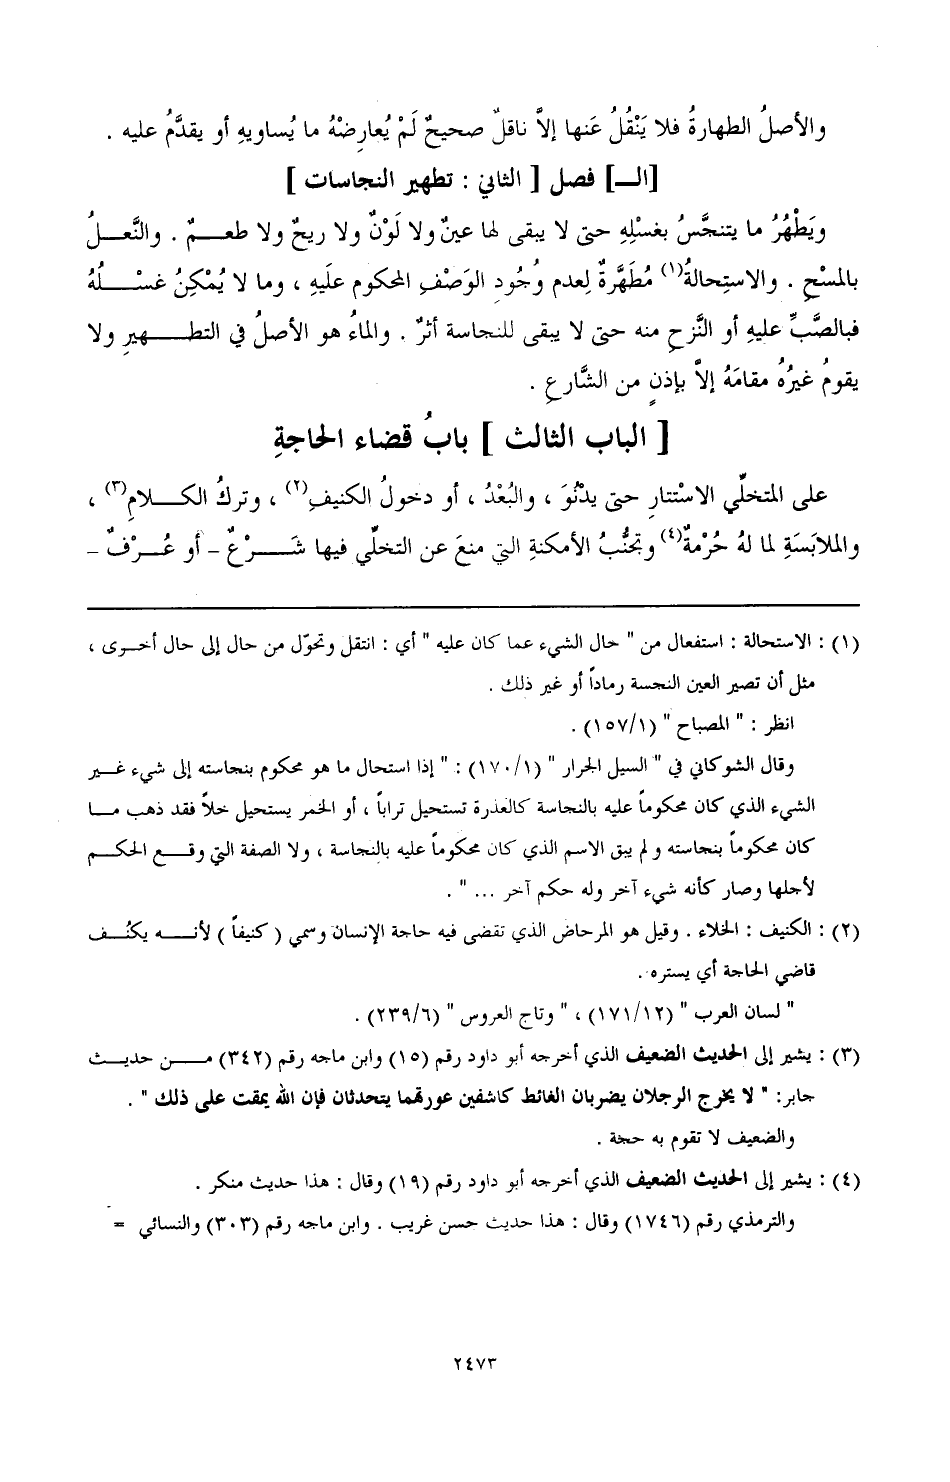 والأصلُ الطهارةُ فلا يَنْقُلُ عَنها إلاَّ ناقلٌ صحيحٌ لَمْ يُعارِضْهُ ما يُساويهِ أو يقدَّمُ عليه .
[الــ] فصل [ الثاني : تطهير النجاسات ]
ويَطْهُرُ ما يتنجَّسُ بغسْلِهِ حتى لا يبقى لها عينٌ ولا لَوْنٌ ولا ريحٌ ولا طعــــمٌ . والنَّعـــلُ
بالمسْحِ . والاستِحالةُ(١) مُطَهَّرةٌ لِعدم وُجُودِ الوَصْفِ المحكوم علَيهِ ، وما لا يُمْكِنُ غســـلُهُ
فبالصَّبِّ عليهِ أو النَّزحِ منه حتى لا يبقى للنجاسة أثرٌ . والماءُ هو الأصلُ في التطـــهيرِ ولا
يقومُ غيرُهُ مقامَهُ إلاَّ بإذنٍ من الشَّارعِ .
[ الباب الثالث ] بابُ قضاء الحاجةِ
على المتخلّي الاسْتتارِ حتى يدْنُوَ ، والبُعْدُ ، أو دخولُ الكنيفِ(٢) ، وتركُ الكـــلامِ(٣) ،
والملابَسَةِ لما لهُ حُرْمةٌ(٤) وتجنُّبُ الأمكنةِ التي منعَ عن التخلّي فيها شـــرْعٌ - أو عُـــرْفٌ -
(١) : الاستحالة : استفعال من " حال الشيء عما كان عليه " أي : انتقل وتحوّل من حال إلى حال أخـرى ،
مثل أن تصير العين النجسة رماداً أو غير ذلك .
انظر : " المصباح " (١/١٥٧) .
وقال الشوكاني في " السيل الجرار " (١/١٧٠) : " إذا استحال ما هو محكوم بنجاسته إلى شيء غـــير
الشيء الذي كان محكوماً عليه بالنجاسة كالعذرة تستحيل تراباً ، أو الخمر يستحيل خلاً فقد ذهب مـــا
كان محكوماً بنجاسته ولم يبق الاسم الذي كان محكوماً عليه بالنجاسة ، ولا الصفة التي وقـــع الحكـــم
لأجلها وصار كأنه شيء آخر وله حكم آخر ... " .
(٢) : الكنيف : الخلاء . وقيل هو المرحاض الذي تقضى فيه حاجة الإنسان وسمي ( كنيفاً ) لأنـــه يكنُـــف
قاضي الحاجة أي يستره .
" لسان العرب " (١٢/١٧١) ، " وتاج العروس " (٦/٢٣٩) .
(٣) : يشير إلى الحديث الضعيف الذي أخرجه أبو داود رقم (١٥) وابن ماجه رقم (٣٤٢) مـــن حديـــث
جابر: " لا يخرج الرجلان يضربان الغائط كاشفين عورتهما يتحدثان فإن الله يمقت على ذلك " .
والضعيف لا تقوم به حجة .
(٤) : يشير إلى الحديث الضعيف الذي أخرجه أبو داود رقم (١٩) وقال : هذا حديث منكر .
والترمذي رقم (١٧٤٦) وقال : هذا حديث حسن غريب . وابن ماجه رقم (٣٠٣) والنسائي =
٢٤٧٣